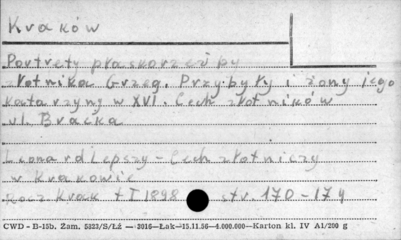 Kraków
Portrety płaskorzeźby
złotnika Grzeg. Przybyły i żony jego
Katarzyny w XVI. Cech złotników
ul. Bracka
Leonard Lepszy - Cech złotniczy
w Krakowie
Rocz Krak t I 1898 str 170-174
CWD - B-15b, Zam. 5323/S/Łź — 3016—Łak—15.11.56—4.000.000—Karton kl. IV A1/200 g